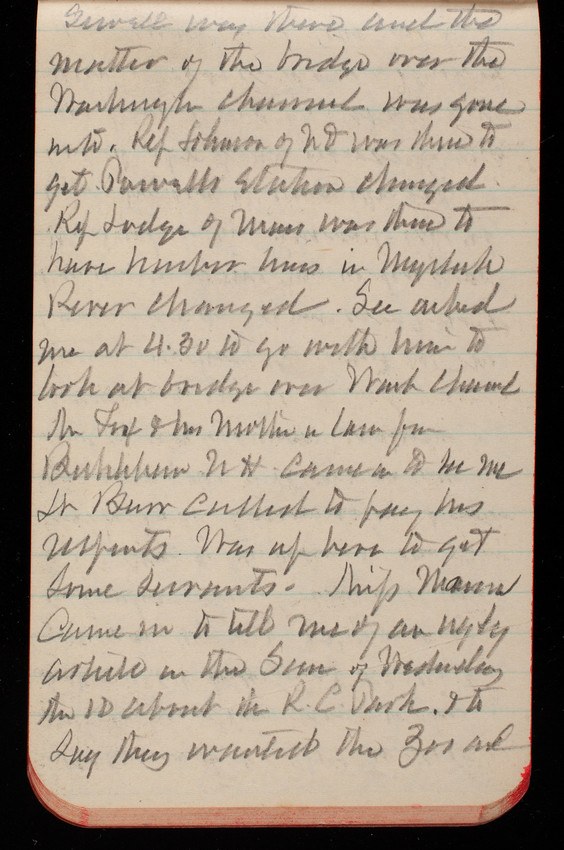 Sewell was there and the
matter of the bridge over the
Washington channel was gone
into. Rep Johnson of N D was there to
get Powells Station changed.
Rep Lodge of Mass was there to
have harbor lines in Mystick
River changed. Sec asked
me at 4.30 to go with him to
look at bridge over Wash Channel
Mr Fox & his Mother in law from
Bethlehem N H. came in to see me
Lt Burr called to pay his
respects. Was up here to get
some servants - Miss Mann
came in to tell me of an ugly
article in the Sun of Wednesday
the 10 about the R. C. Park. & to
say they wanted the Zoo and